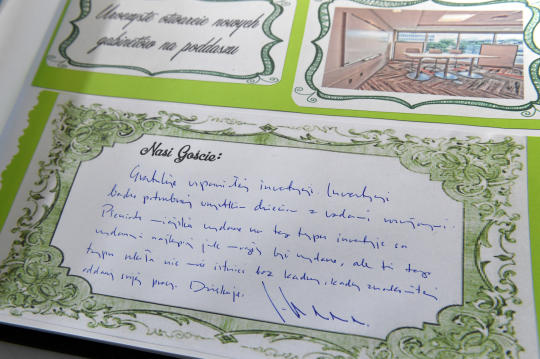 Uroczyste otwarcie nowych
gabinetów na poddaszu
Nasi Goście:
Gratuluję wspaniałej inwestycji. Inwestycji
bardzo potrzebnej wszystkim dzieciom z wadami wymowy.
Pieniądze miejskie wydane na tego typu inwestycje są
wydane najlepiej jak mogły być wydane, ale też tego
typu szkoła nie może istnieć bez kadry, kadry znakomitej
oddanej swojej pracy. Dziękuję.